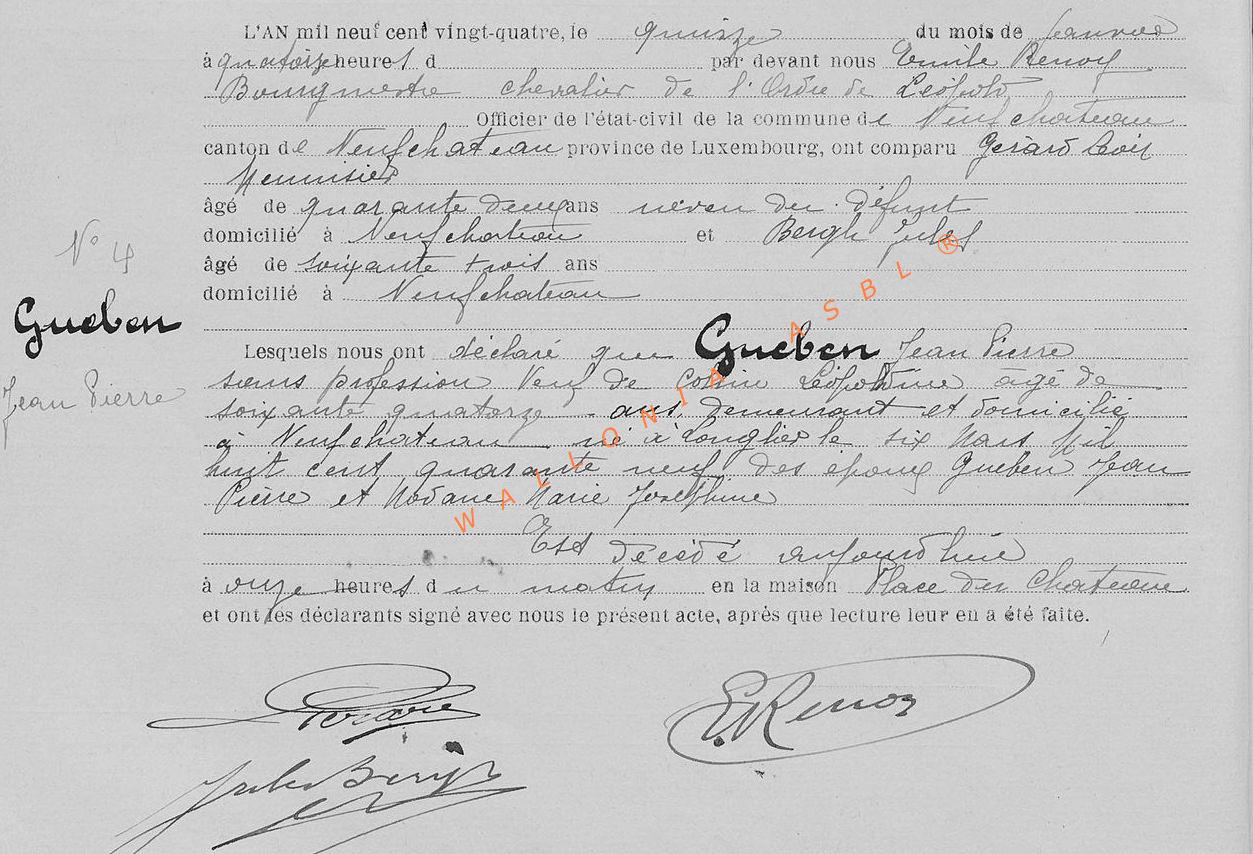 L'AN mil neuf cent vingt-quatre, le quinze du mois de Janvier
à quatorze heures d par devant nous Emile Renoy
Bourgmestre chevalier de l'Ordre de Léopold
Officier de l'état-civil de la commune de Neufchateau
canton de Neufchateau province de Luxembourg, ont comparu Gérard
Menuisier
âgé de quarante deux ans neveu du défunt
domicilié à Neufchateau et Bergh Jules
âgé de soixante trois ans
domicilié à Neufchateau
N° 4
Gueben
Jean Pierre
Lesquels nous ont déclaré que Gueben Jean Pierre
sans profession Veuf de Collin Léopoldine âgé de
soixante quatorze ans demeurant et domicilié
à Neufchateau né à Longlier le six Mars Mil
huit cent quarante neuf des époux Gueben Jean
Pierre et Marie Josephine
Est décédé aujourdhui
à onze heures du matin en la maison Place du Chateau
et ont les déclarants signé avec nous le présent acte, après que lecture leur en a été faite.
WALLONIA ASBL ®
Gérard
E. Renoy
Jules Bergh